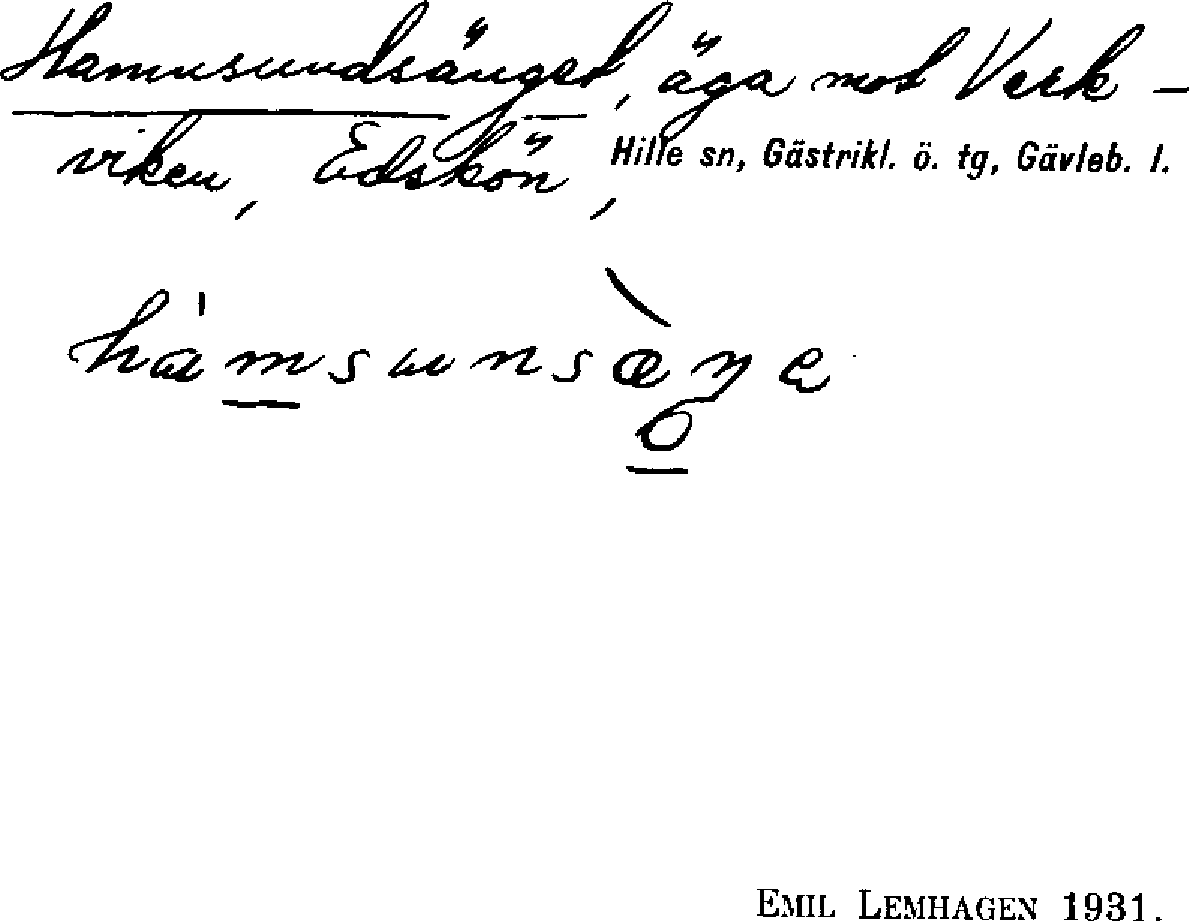 Hamnsundsänget, äga mot Verk-
viken, Edskön, Hille sn, Gästrikl. ö. tg, Gävleb. l.
EMIL LEMHAGEN 1931.